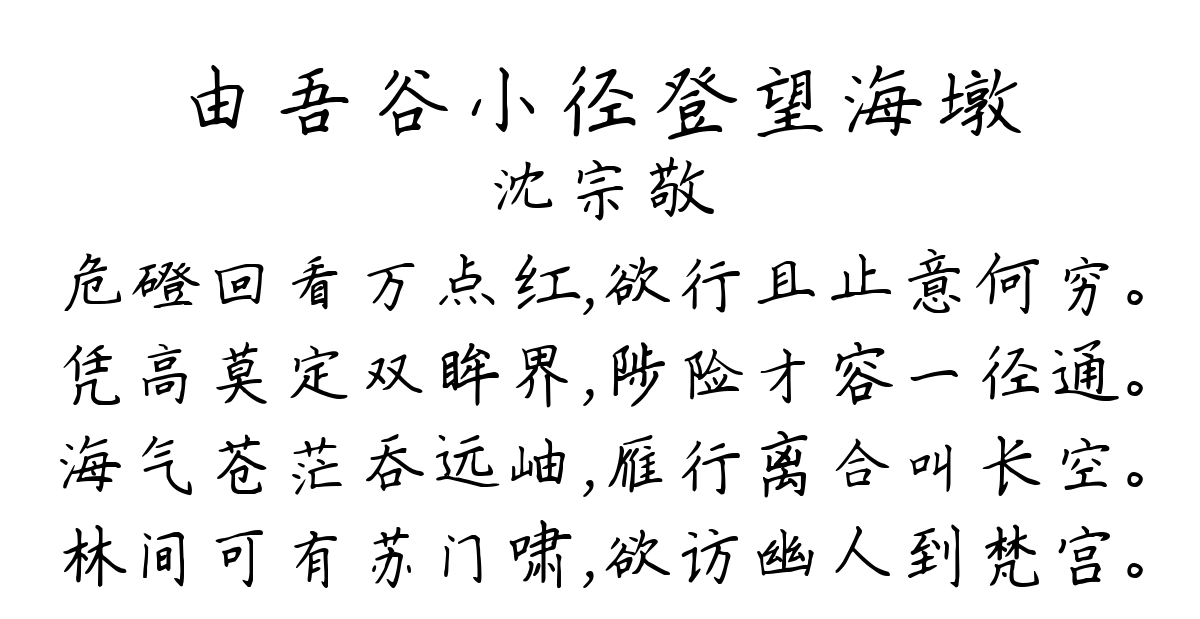 由吾谷小径登望海墩
沈宗敬
危磴回看万点红,欲行且止意何穷。
凭高莫定双眸界,陟险才容一径通。
海气苍茫吞远岫,雁行离合叫长空。
林间可有苏门啸,欲访幽人到梵宫。